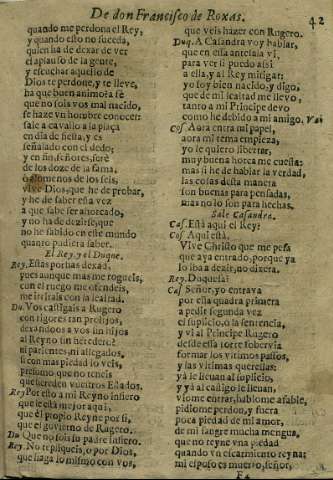 De don Francisco de Roxas. 42
quando me perdona el Rey,
y quando esto no suceda,
quien ha de dexar de ver
el aplauso de la gente,
y escuchar aquello de
Dios te perdone, y te lleve,
ha que buen anima rè fè
que no sois vos mal nacido,
se haze vn hombre conocer:
sale a cavallo a la plaça
en dia de fiesta, y es
señalado con el dedo;
y en fin, señores, serè
de los doze de la fama,
o lo menos de los seis,
vive Dios, que he de probar,
y he de saber esta vez
a que sabe ser ahorcado,
y no ha de dezirse, que
no he sabido en este mundo
quanto pudiera saber.
El Rey, y el Duque.
Rey. Estas porfias dexad,
pues aunque mas me rogueis,
con el ruego me ofendeis,
me irritais con la lealtad.
Du. Vos castigais a Rugero
con rigores tan prolijos,
dexandoos a vos sin hijos
al Reyno sin heredero?
ni parientes, ni allegados,
si con mas piedad lo veis,
presumo que no teneis
que hereden vuestros Estados.
Rey Por esto a mi Reyno infiero
que le està mejor aqui,
que el propio Reyne por si,
que el govierno de Rugero.
Du Que no sois su padre infiero.
Rey. No repliqueis, o por Dios,
que haga lo mismo con vos,
que veis hazer con Rugero.
Duq. A Casandra voy hablar,
que en esta antesala vi,
para ver si puedo assi
a ella, y al Rey mitigar;
yo soy bien nacido, y digo,
que de mi lealtad me llevo,
tanto a mi Principe devo
como he debido a mi amigo. Vas
Cos. Aora entra mi papel,
aora mi tema empieza,
yo le quiero libertar,
muy buena horca me cuesta:
mas si he de hablar la verdad,
las cosas desta manera
son buenas para pensadas,
mas no lo son para hechas.
Sale Casandra.
Cas. Està aqui el Rey?
Cos Aqui està.
Vive Christo que me pesa
que aya entrado, porque ya
lo iba a dezir, no dizera.
Rey. Duquesa?
Cas Señor, yo entrava
por esta quadra primera
a pedir segunda vez
el suplicio, o la sentencia,
y vi al Principe Rugero
desde essa torre sobervia
formar los vltimos passos,
y las vltimas querellas:
yà le llevan al suplicio,
y yà al castigo le llevan,
viome entrar, hablome afable,
pidiome perdon, y fuera
poca piedad de mi amor,
de mi sangre mucha mengua,
que no reyne vna piedad
quando vn escarmiento reyna:
mi esposo es muerto, señor,